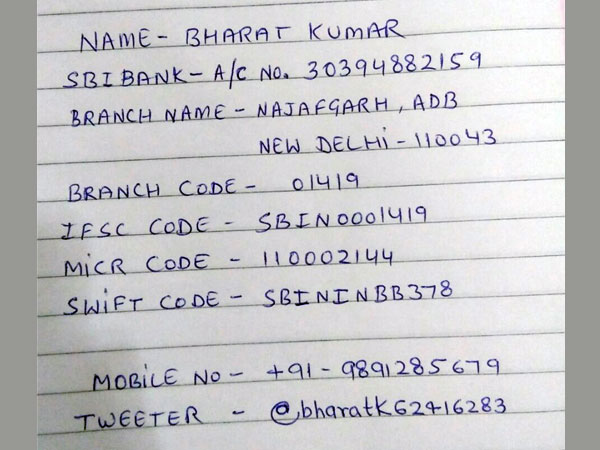 NAME - BHARAT KUMAR
SBI BANK - A/C NO. 30394882159
BRANCH NAME - NAJAFGARH, ADB
NEW DELHI - 110043
BRANCH CODE - 01419
IFSC CODE - SBIN0001419
MICR CODE - 110002144
SWIFT CODE - SBININBB378
MOBILE NO - +91 - 9891285679
TWEETER - @bharatK62416283